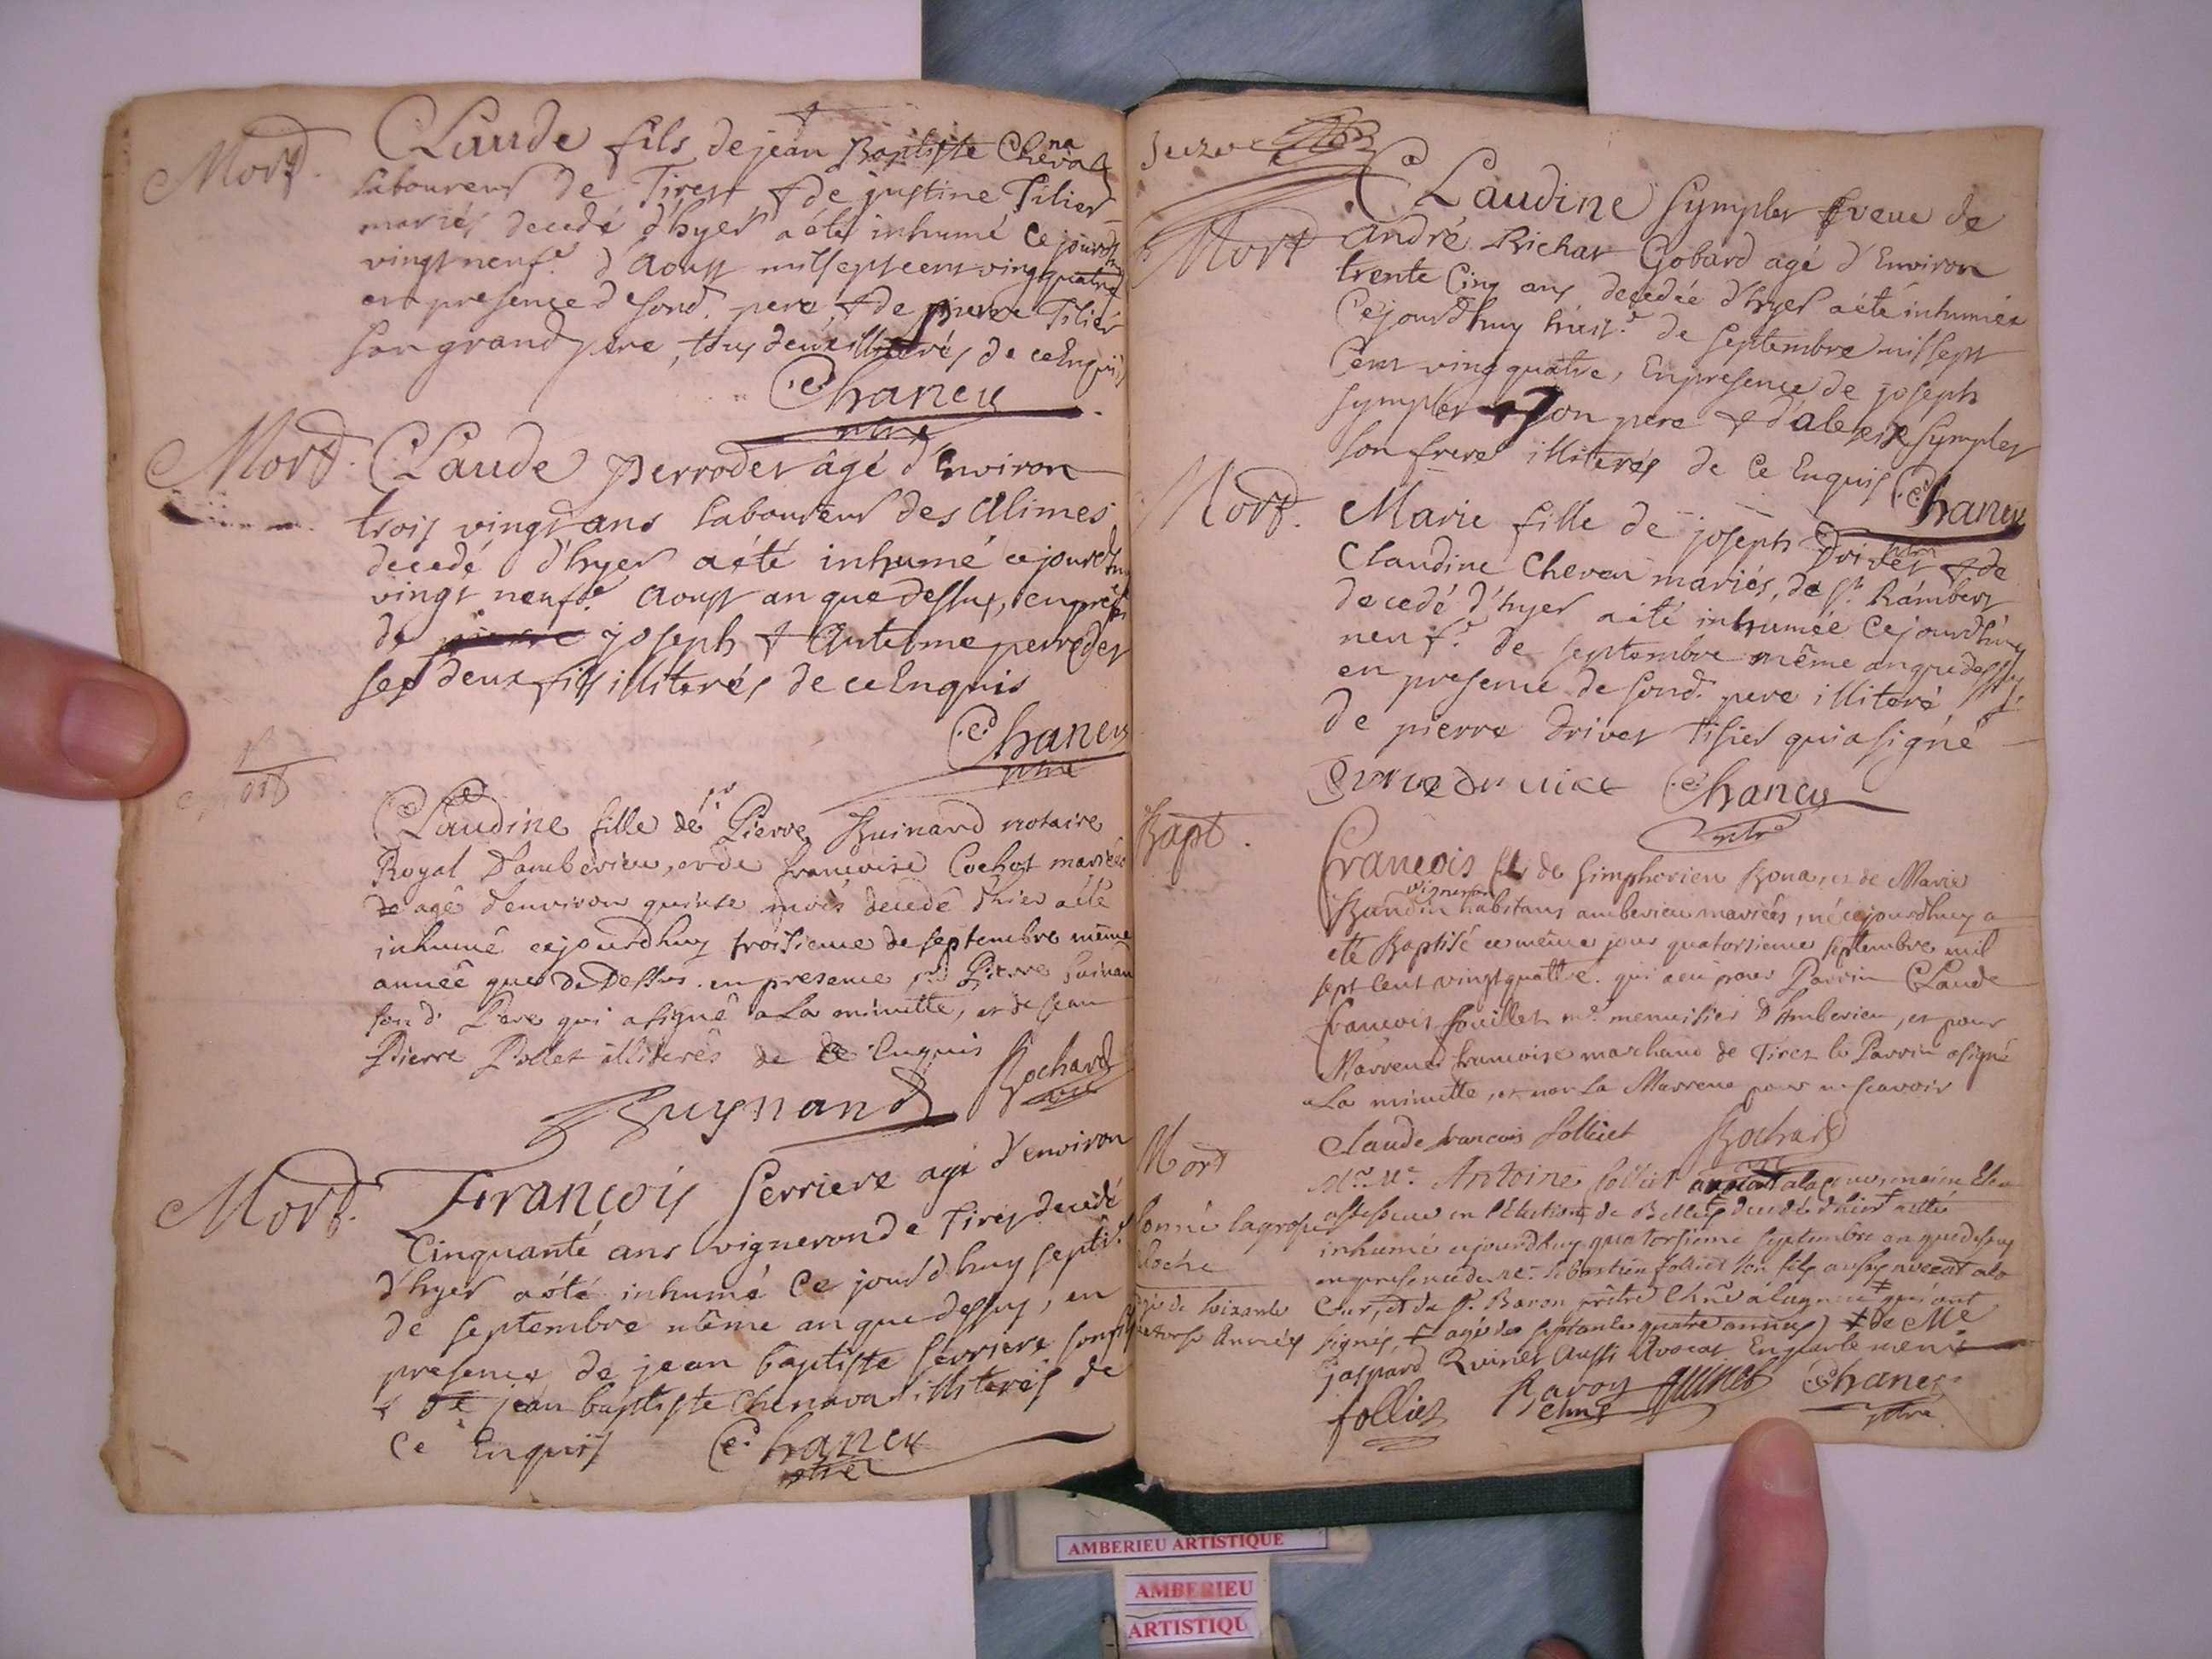 Mort.
Claude fils de jean Baptiste Chenaval
laboureur de Tirest & de justine Tilier
mariés decedé d'hyer a été inhumé ce jourdhuy
vingt neufe. d'Aoust mil sept cent vingt quatre
en presence de sond. pere, & de pierre Tilier
son grand pere, tous deux illiterés de ce Enquis
Chaneu
ptre
Mort.
Claude perrodet âgé d'Environ
trois vingt ans laboureur des Alimes
decedé d'hyer a été inhumé ce jourdhuy
vingt neufe. Aoust an que dessus, en presence
de joseph & Antelme perrodet
ses deux fils illiterés de ce Enquis
Chaneu
ptre
Mort
Claudine fille de sr. Pierre Guinard notaire
Royal D'amberieu, et de francoise Cochet mariés
agê d'environ quinse mois decedê d'hier a été
inhumê cejourdhuy troisieme de septembre même
année que de Dessus. en presence sr. Pierre Guinard
son d. Pere qui a signê a La minutte, et de Jean
Pierre Pollet illiterês de ce Enquis
Guynand Bochard
Mort.
François serriere agé d'environ
Cinquante ans vigneron de Tirest decedé
d'hyer a été inhumé ce jourdhuy septie.
de septembre même an que dessus, en
presence de jean baptiste serriere son fils
& jean baptiste Chenaval illiterés de
ce Enquis Chaneu
ptre
Mort
Claudine sympler veue de
André Richar Gobard agé d'Environ
trente Cinq ans decedée d'hyer a été inhumée
Cejourdhuy huite. de septembre mil sept
Cent ving quatre, En presence de joseph
sympler son pere & d'alexis sympler
son frere illiterés de Ce Enquis Chaneu
ptre
Mort.
Marie fille de joseph Drivet & de
Claudine Cheveu mariés, de st. Rambert
decedé d'hyer a été inhumée Cejourdhuy
neufe. de septembre même an que dessus
en presence de sond. pere illiteré &
de pierre Drivet Tisier qui a signé
Chaneu
ptre
Bapt.
francois fils de simphorien Bona, et de Marie
Baudin vigneron habitans amberieu mariés, né cejourdhuy a
été Baptisé ce même jour quatorsieme septembre mil
sept cent vingt quatre. qui a eu pour Parrin Claude
francois folliet me. menuisier D'Amberieu, et pour
Marrene francoise marchand de Tiret le Parrin a signé
a La minutte, et non La Marrene pour ne scavoir
Claude francois folliet Bochard
Mort
Sonné la grosse
cloche
agé de soixante
quatorse Années
Mre. Me. Antoine folliet
assesseur en l'Election de Belley decedé d'hier a été
inhumé cejourdhuy quatorsieme septembre an que dessus
en presence de Me. sebastien folliet son fils aussy avocat a la
Cour, et de sr. Baron prêtre qui ont
signés, & agé de septante quatre années & de Me
Gaspard Quinet Aussi Avocat En parlement
folliet Baron Quinet Chaneu
ptre
AMBERIEU ARTISTIQUE
AMBERIEU
ARTISTIQU